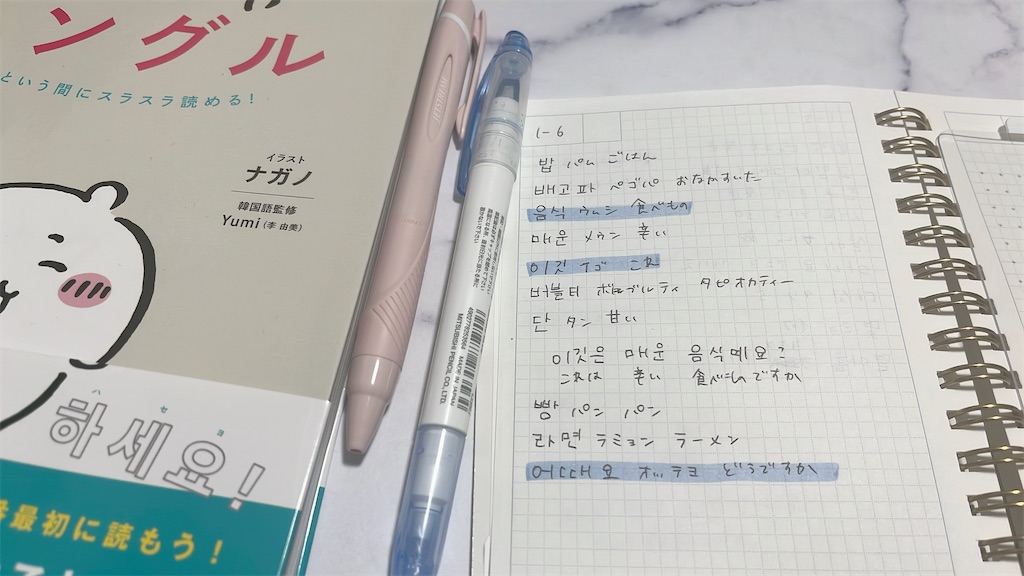 ングル
という間にスラスラ読める!
イラスト
ナガノ
韓国語監修
Yumi (李 由美)
ハ セ ヨ
하세요!
番最初に読もう!
JETSTREAM
MITSUBISHI PENCIL CO.,LTD.
MADE IN JAPAN
1-6
밥 パム ごはん
배고파 ペゴパ おなかすいた
음식 ウムシ 食べもの
매운 メウン 辛い
이것 イゴ これ
버블티 ボブルティ タピオカティー
단 タン 甘い
이것은 매운 음식예요?
これは 辛い 食べものですか
빵 パン パン
라면 ラミョン ラーメン
어때요 オッテヨ どうですか